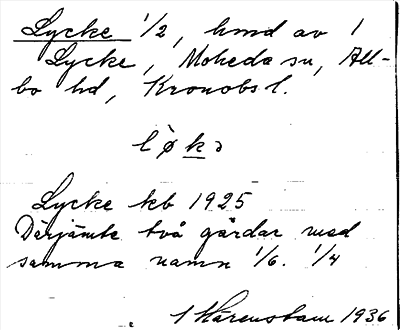 Lycke 1/2, hmd av 1
Lycke, Moheda sn, All-
bo hd, Kronobs l.
lø̀kə
Lycke kb 1925
Därjämte två gårdar med
samma namn 1/6. 1/4
1 Härenstam 1936